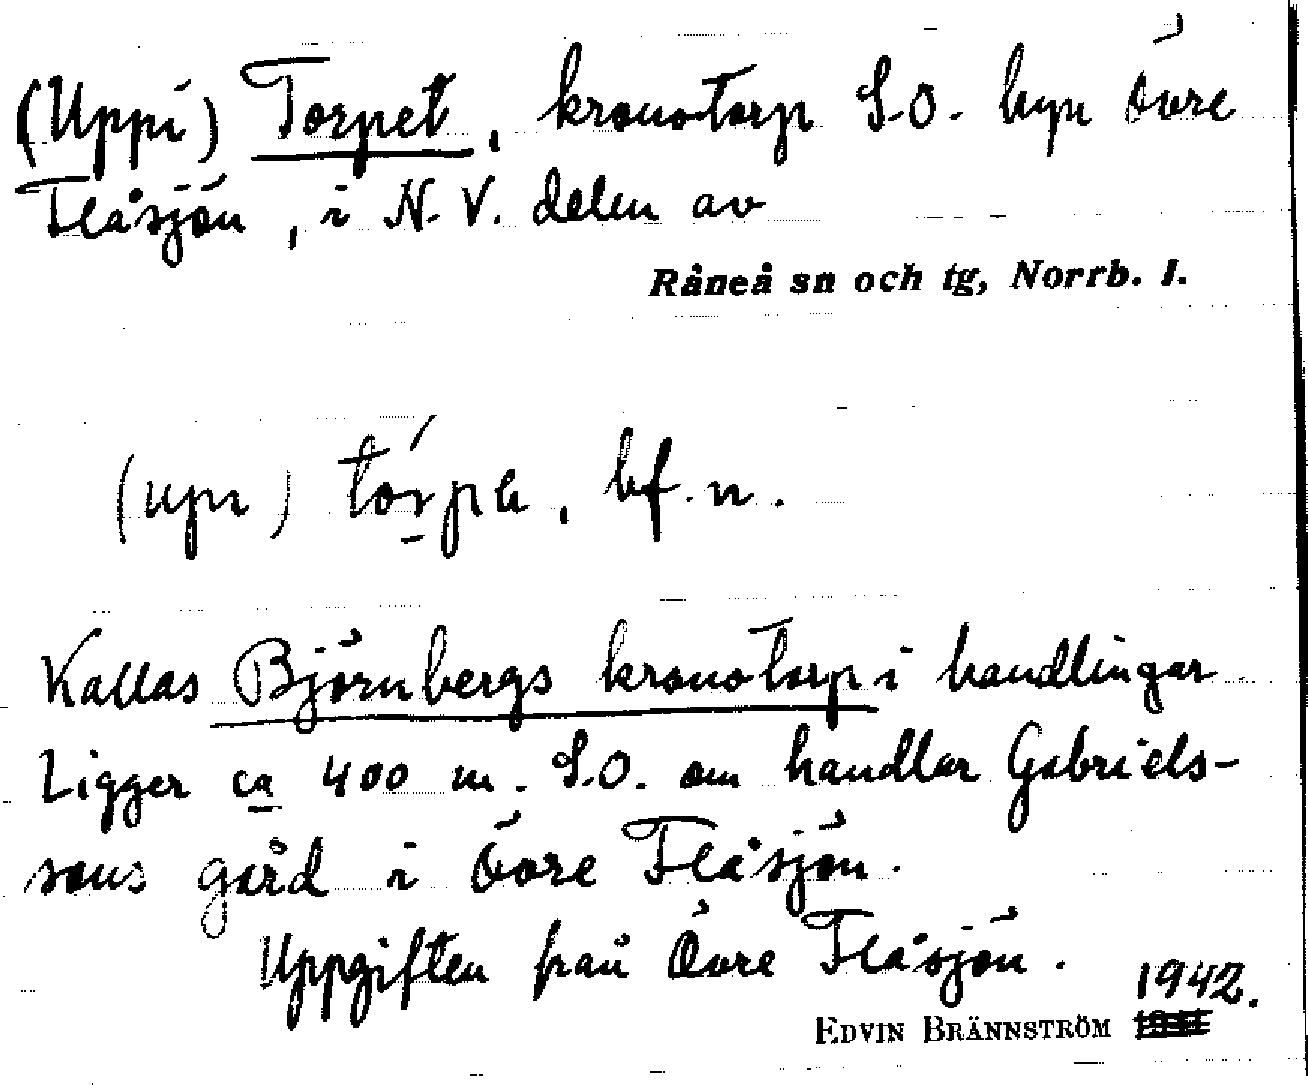 (Uppi) Torpet, kronotorp S.O. byn Övre
Flåsjön, i N.V. delen av
Råneå sn och tg, Norrb. l.
(upi) tórpa, bf. n.
Kallas Björnbergs kronotorp i handlingar
Ligger ca 400 m. S.O. om handlar Gabriels-
sons gård i Övre Flåsjön.
Uppgiften från Övre Flåsjön.
1942.
EDVIN BRÄNNSTRÖM